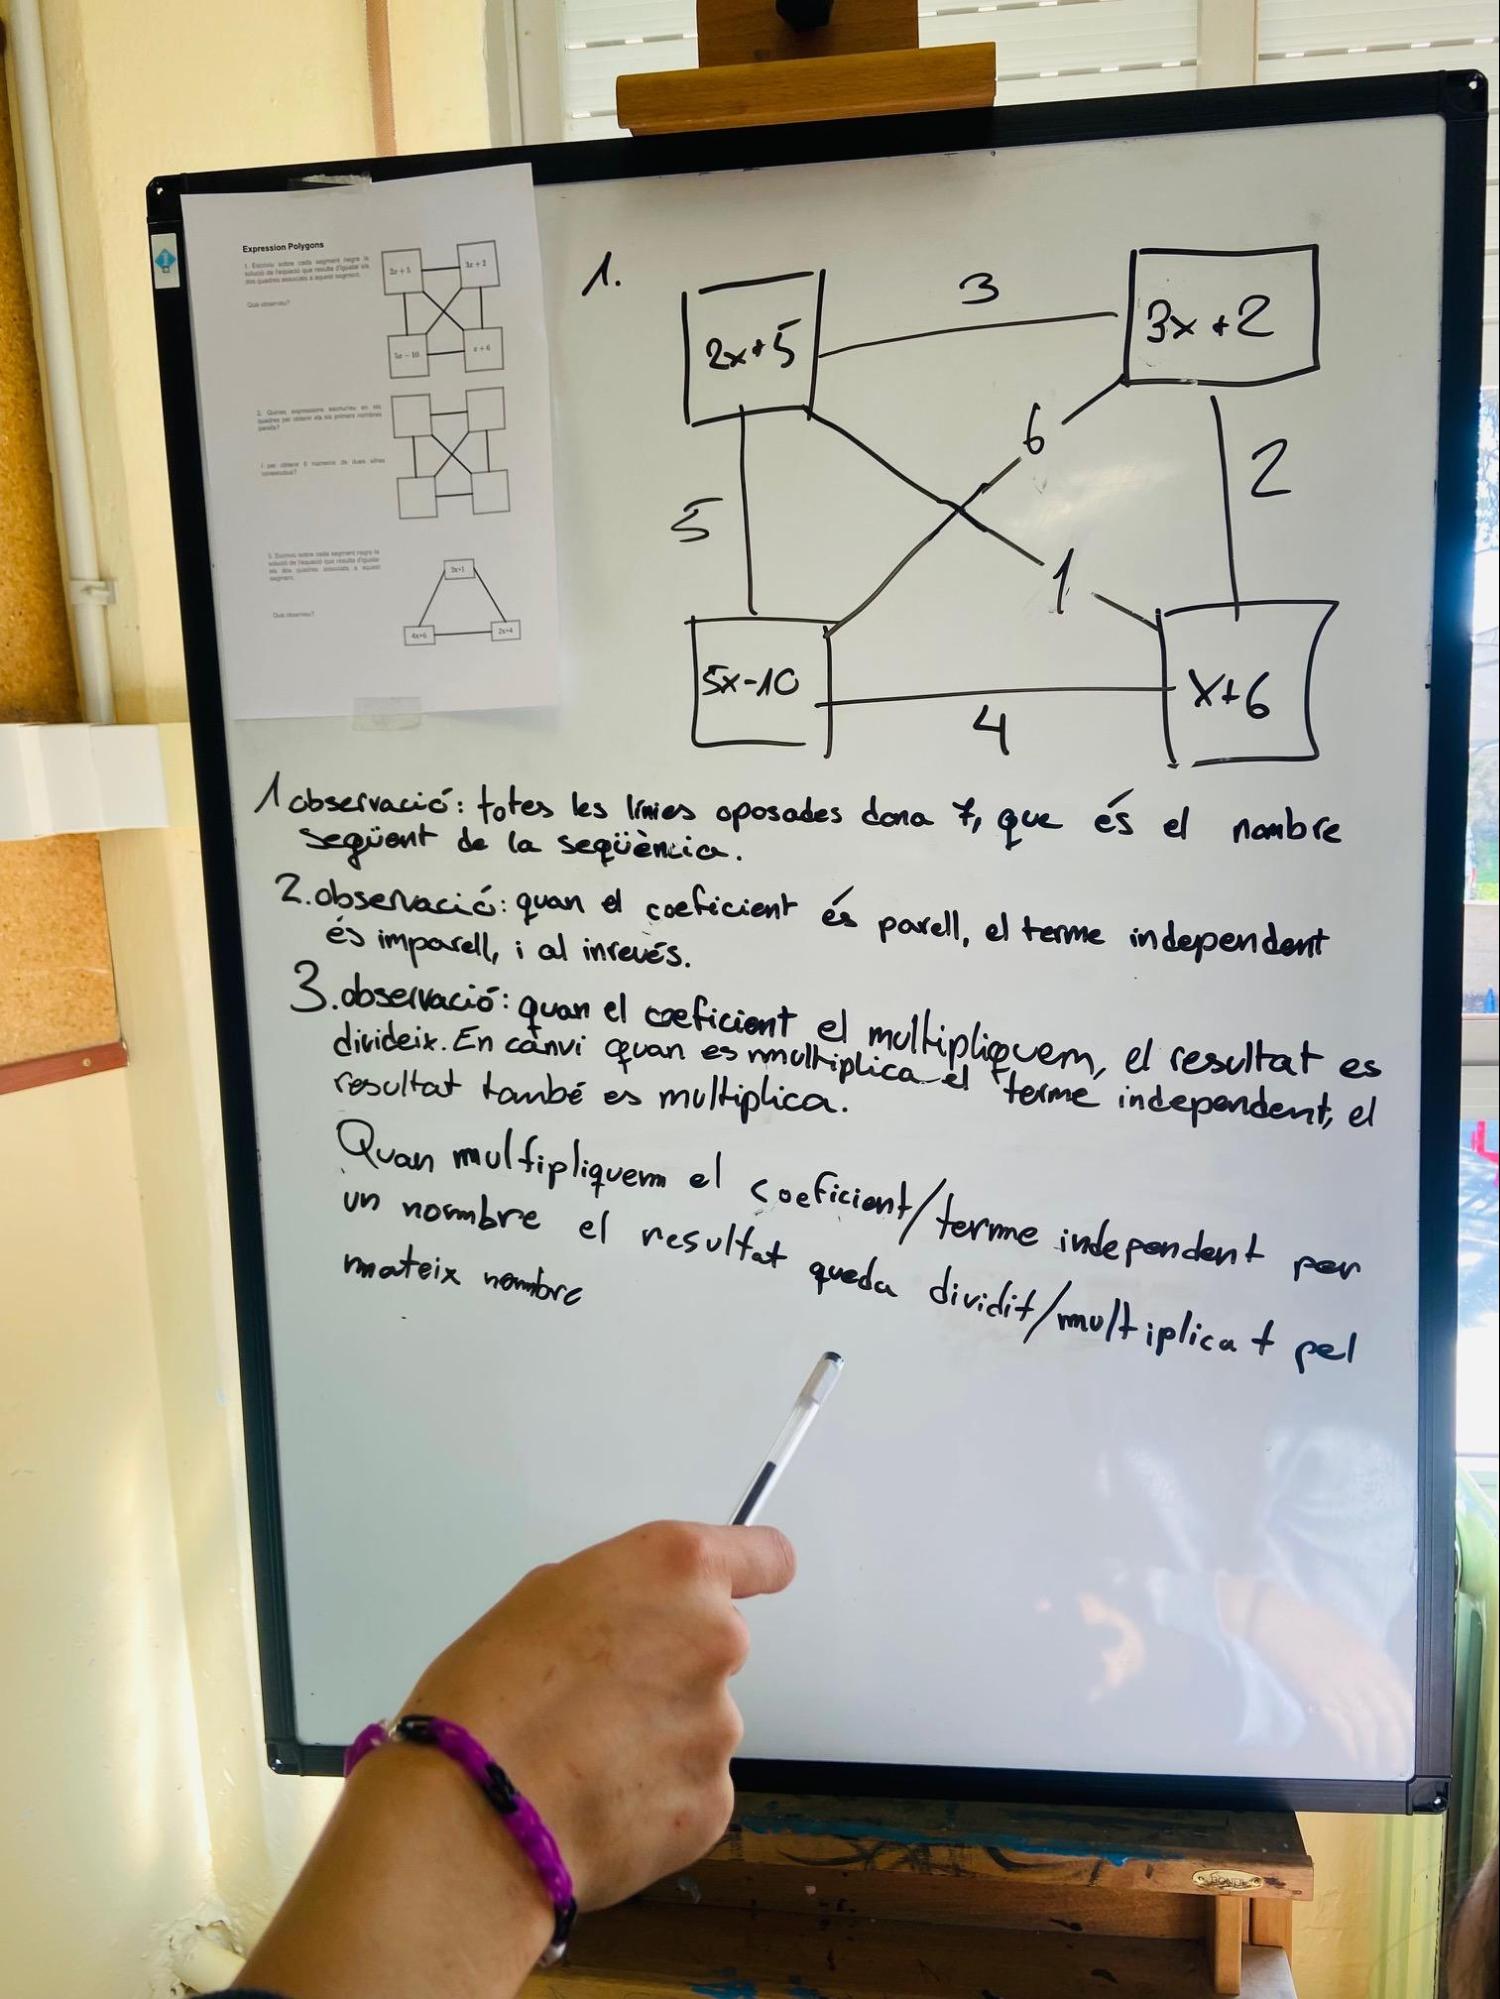 Expression Polygons
1. Escriviu sobre cada segment negre la
solució de l'equació que resulta d'igualar els
dos quadres associats a aquest segment.
Què observeu?
2x + 5
3x + 2
5x − 10
x + 6
2. Quines expressions escriuríeu en els
quadres per obtenir els sis primers nombres
parells?
I per obtenir 6 números de dues xifres
consecutius?
3. Escriviu sobre cada segment negre la
solució de l'equació que resulta d'igualar
els dos quadres associats a aquest
segment.
Què observeu?
3x+1
4x+6
2x+4
1.
2x+5
3
3x+2
6
5
2
1
5x-10
4
x+6
1 observació: totes les línies oposades dona 7, que és el nombre
següent de la seqüència.
2. observació: quan el coeficient és parell, el terme independent
és imparell, i al inrevés.
3. observació: quan el coeficient el multipliquem, el resultat es
divideix. En canvi quan es multiplica el terme independent, el
resultat també es multiplica.
Quan multipliquem el coeficient/terme independent per
un nombre el resultat queda dividit/multiplicat pel
mateix nombre